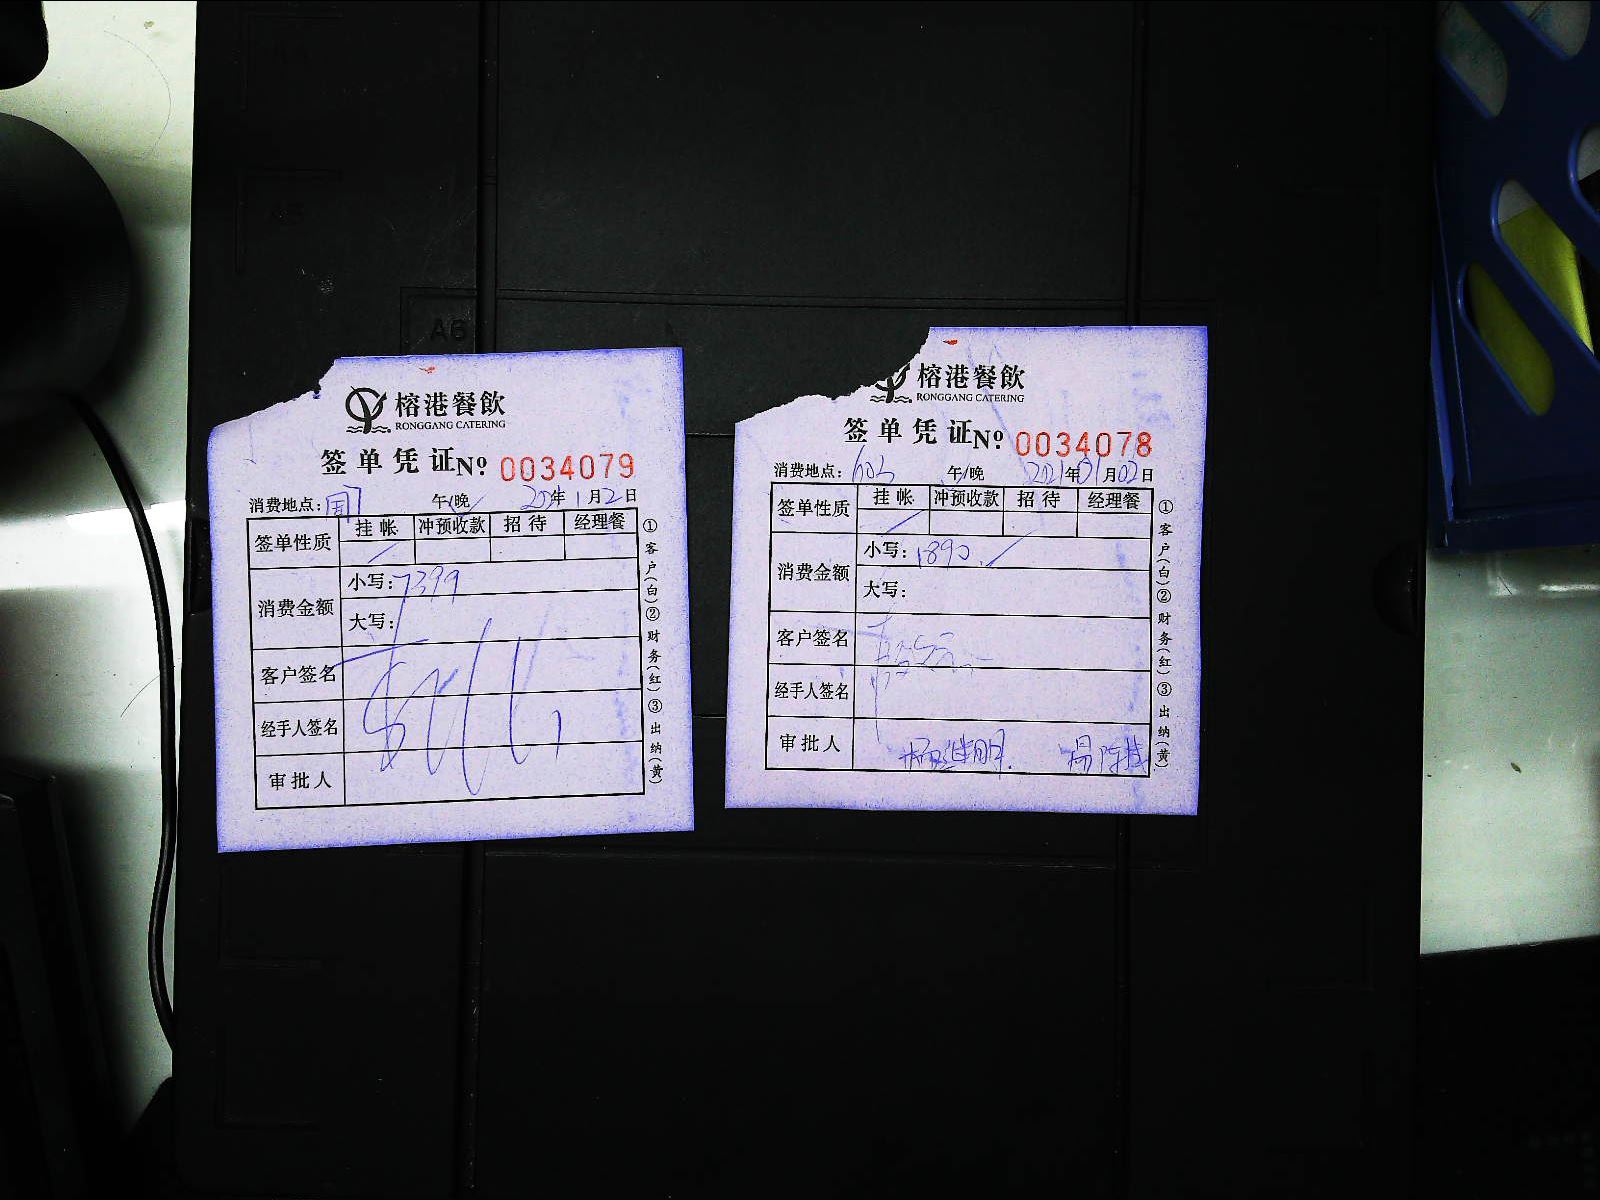 A6
榕港餐飲
RONGGANG CATERING
签单凭证 Nº 0034079
消费地点: 午/晚 2021年1月2日
签单性质 挂帐 冲预收款 招待 经理餐
消费金额 小写: 7399
大写:
客户签名
经手人签名
审批人
①客户(白)②财务(红)③出纳(黄)
榕港餐飲
RONGGANG CATERING
签单凭证 Nº 0034078
消费地点: 603 午/晚 2021年01月02日
签单性质 挂帐 冲预收款 招待 经理餐
消费金额 小写: 1890.
大写:
客户签名
经手人签名
审批人
①客户(白)②财务(红)③出纳(黄)